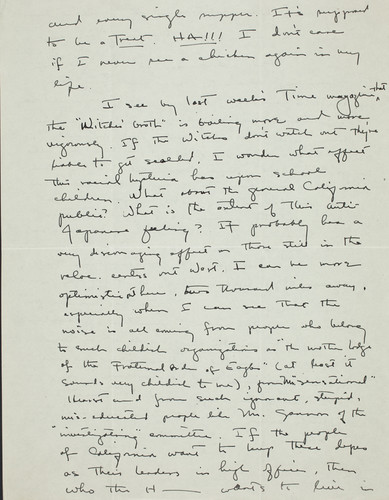 and every single supper. It's supposed
to be a treat. HA!!! I don't care
if I never see a chicken again in my
life.
I see by last week's Time magazine, that
the "Witches' broth" is boiling more and more
vigorously. If the Witches don't watch out they're
to get scalded. I wonder what effect
this racial hysteria has upon school
children. What about the general California
public? What is the extent of this anti-
Japanese feeling? It probably has a
very discouraging effect on those still in the
reloc. centers out West. I can be more
optimistic here, two thousand miles away,
especially when I can see that the
noise is all coming from people who belong
to such childish organizations as "the mother lodge
of the Fraternal Order of Eagles" (at least it
sounds very childish to me), from "sensational"
and from such ignorant, stupid,
mis-educated people like Mr. Gannon of the
"investigating committee." If the people
of California want to keep these dopes
as their leaders in high offices, then
who the H—— wants to live in